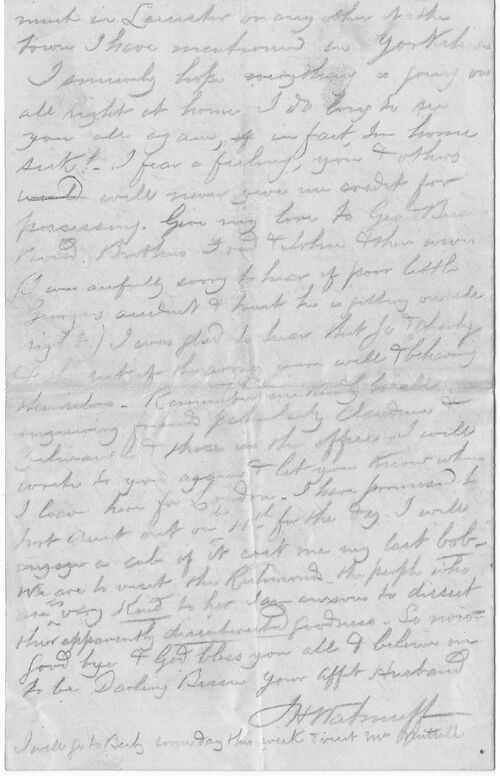 much in Leicester or any other of the
town I have mentioned in Yorkshire
I sincerely hope everything is going on
all right at home I do long to see
you all again, in fact Im home
sick! - I fear a feeling, you & others
will never give me credit for
possessing. Give my love to Geo
Brothers Fred & John & their wives
(I was awfully sorry to hear of poor little
accident & trust he is getting on all
right) I was glad to hear that Jo & Charley
& the rest of the army were well & behaving
themselves - Remember me kindly to all
inquiring friends particularly &
& those in the office. I will
write to you again & let you know when
I leave here for London - I have promised to
Aunt out on 11th for the day. I will
engage a cab if it cost me my last bob -
We are to visit the Richmond the people who
are very kind to her anxious to dissect
their apparently disinterested goodness - So now
good bye & God bless you all & believe me
to be Darling your affct Husband
I will go to someday this week & visit Mr